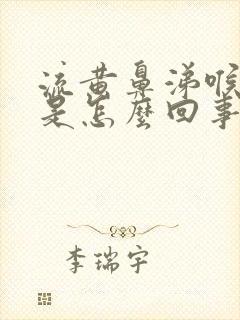 流黄鼻涕喉
是怎麼回事
李瑞宇